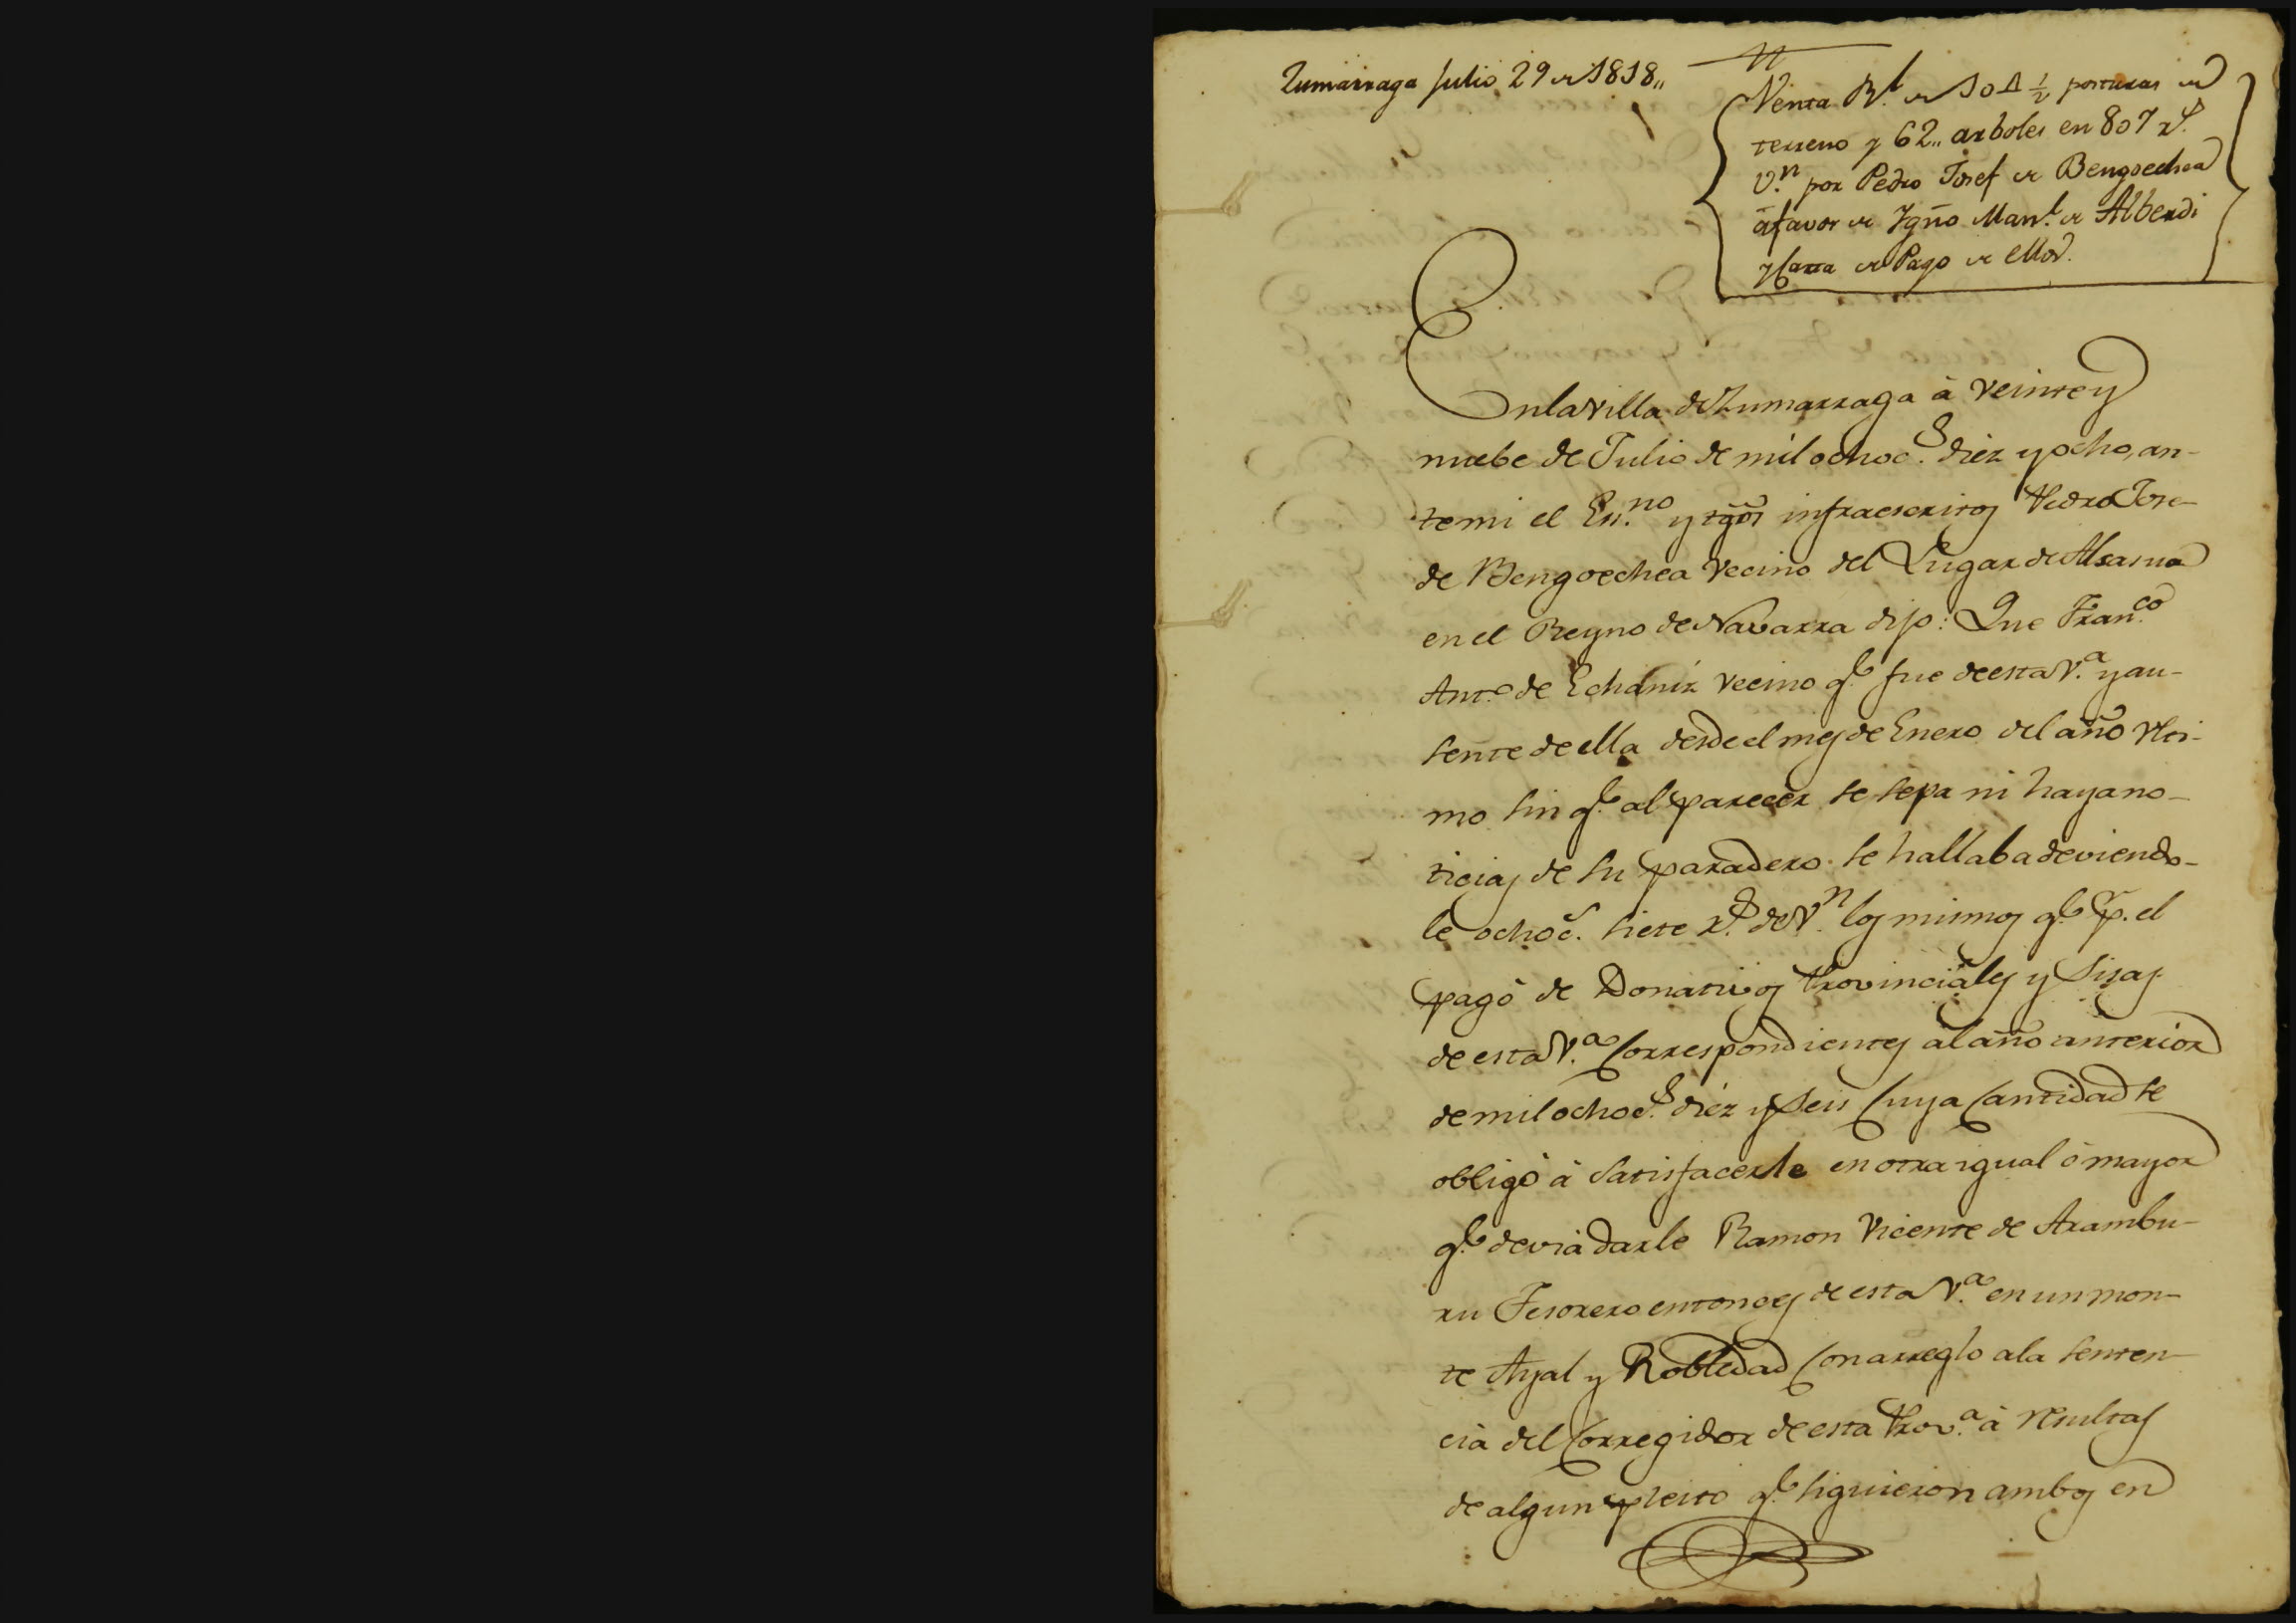 Zumarraga Julio 29 de 1818,,
Venta Rl. de 101 1/2 posturas de
terreno y 62,, arboles en 807 rs.
Vn. por Pedro Josef de Bengoechea
á favor de Ygño Manl. de Alberdi
y Carta de Pago de ellos.
En la villa de Zumarraga à veinte y
nuebe de Julio de mil ochocs. diez y ocho, an-
te mi el Esno. y tgos infraescritos Pedro Jose
de Bengoechea vecino del Lugar de Alsasua
en el Reyno de Navarra dijo: Que Franco.
Anto. de Echaniz vecino qe. fue de esta Va. y au-
sente de ella desde el mes de Enero del año ulti-
mo sin qe. al parecer se sepa ni haya no-
ticias de su paradero se hallaba deviendo-
le ochoc. siete rs. de Vn. los mismos qe. p. el
pagó de Donativos Provinciales y Sisas
de esta Va. correspondientes al año anterior
de mil ochocs. diez y seis cuya cantidad se
obligó à satisfacerle en otra igual ò mayor
qe. devia darle Ramon Vicente de Arambu-
ru Tesorero entonces de esta Va. en un mon-
te Ayal y Robledad con arreglo a la senten-
cia del Corregidor de esta Prova. à resultas
de algun pleito qe. siguieron ambos en